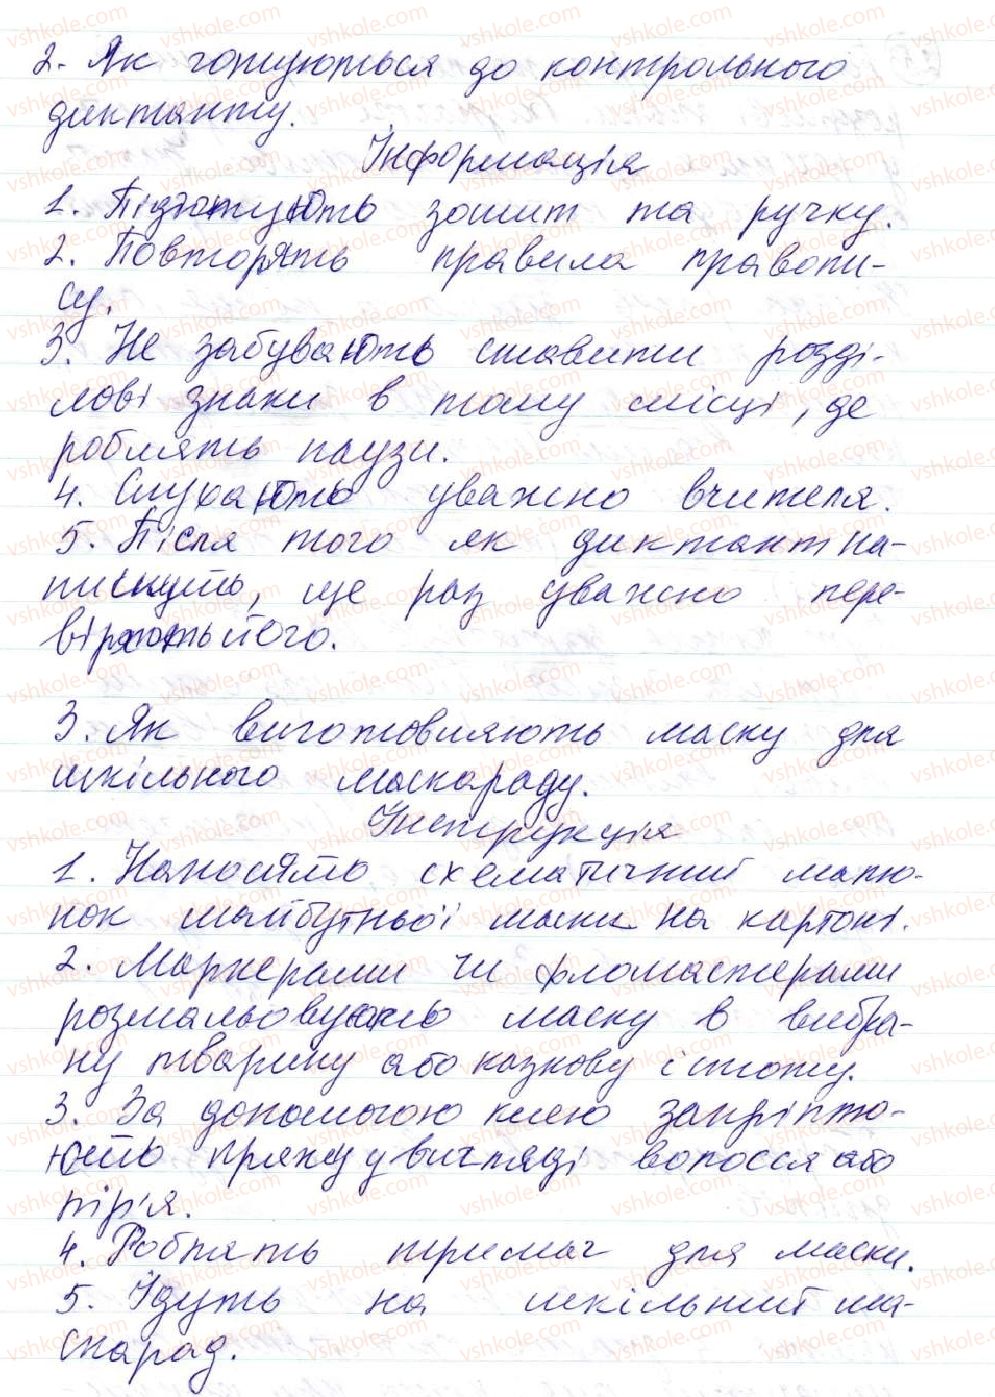 2. Як готуються до контрольного
диктанту.
Інформація
1. Підготують зошит та ручку.
2. Повторять правила правопи-
су.
3. Не забувають ставити розді-
лові знаки в тому місці, де
роблять паузи.
4. Слухають уважно вчителя.
5. Після того як диктант на-
пишуть, ще раз уважно пере-
віряють його.
3. Як виготовляють маску для
шкільного маскараду.
Інструкція
1. Наносять схематичний малю-
нок майбутньої маски на картоні.
2. Маркерами чи фломастерами
розмальовують маску в вибра-
ну тварину або казкову істоту.
3. За допомогою клею закріплю-
ють пряжу у вигляді волосся або
пір'я.
4. Роблять тримач для маски.
5. Йдуть на шкільний ма-
скарад.